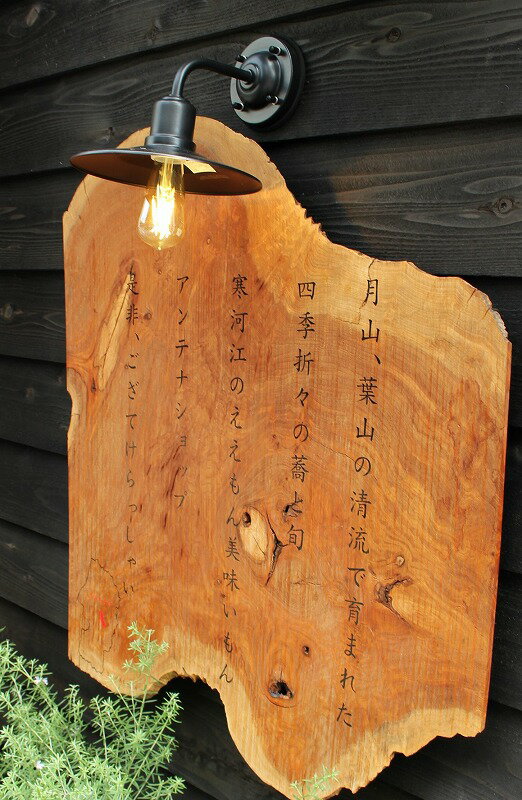 月山、葉山の清流で育まれた
四季折々の蕎と旬
寒河江のええもん美味いもん
アンテナショップ
是非、ござてけらっしゃい